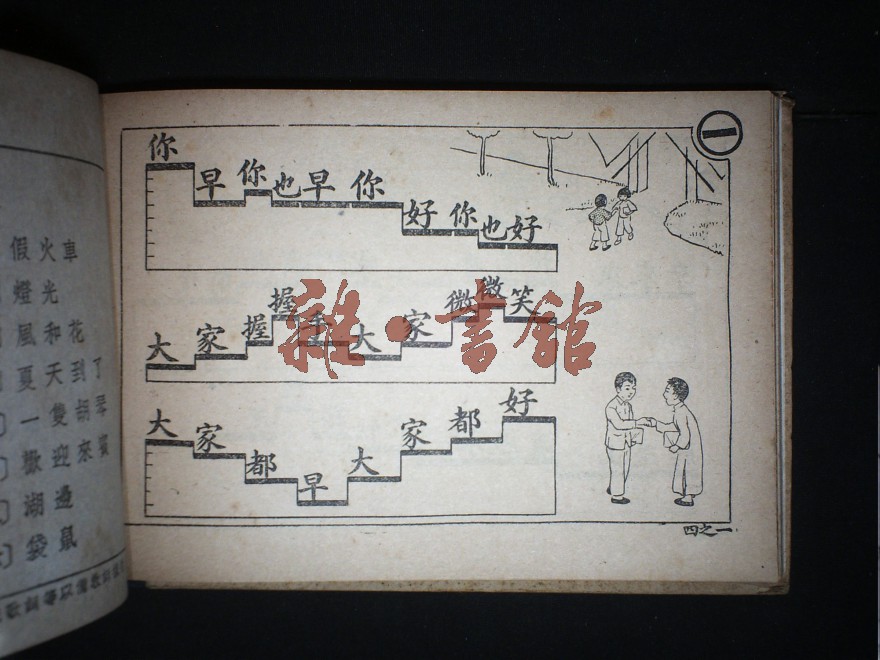 假火車
燈光
風和花
夏天到了
一隻胡琴
歡迎來賓
湖邊
袋鼠
一
你早你也早你好你也好
大家握握手大家微微笑
大家都早大家都好
四之一
雜·書館